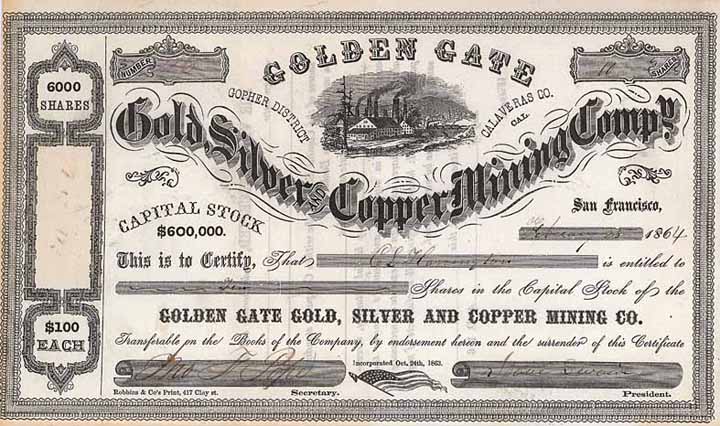 6000
SHARES
$100
EACH
NUMBER
SHARES
GOLDEN GATE
GOPHER DISTRICT
CALAVERAS CO.
CAL.
Gold, Silver and Copper Mining Compy.
CAPITAL STOCK
$600,000.
San Francisco,
1864
This is to Certify, That is entitled to
Shares in the Capital Stock of the
GOLDEN GATE GOLD, SILVER AND COPPER MINING CO.
Transferable on the Books of the Company, by endorsement hereon and the surrender of this Certificate
Incorporated Oct. 24th, 1863.
Robbins & Co's Print, 417 Clay st.
Secretary.
President.